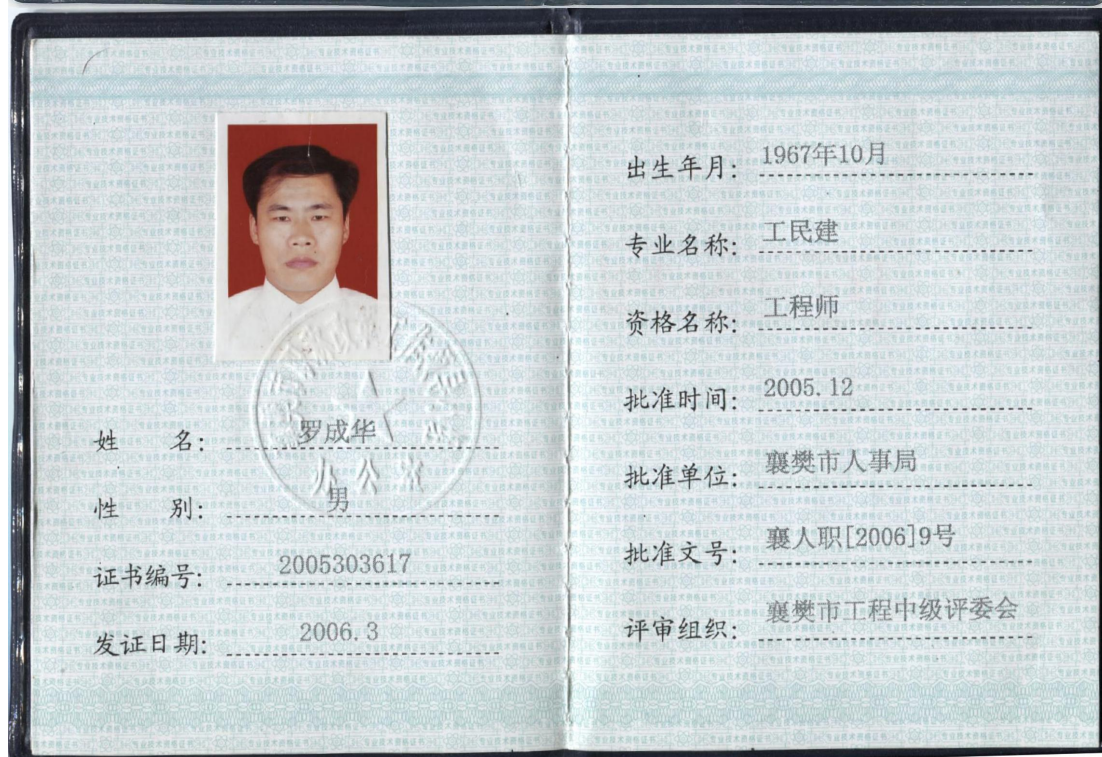 姓 名: 罗成华
性 别: 男
证书编号: 2005303617
发证日期: 2006.3
办公室
出生年月: 1967年10月
专业名称: 工民建
资格名称: 工程师
批准时间: 2005.12
批准单位: 襄樊市人事局
批准文号: 襄人职[2006]9号
评审组织: 襄樊市工程中级评委会